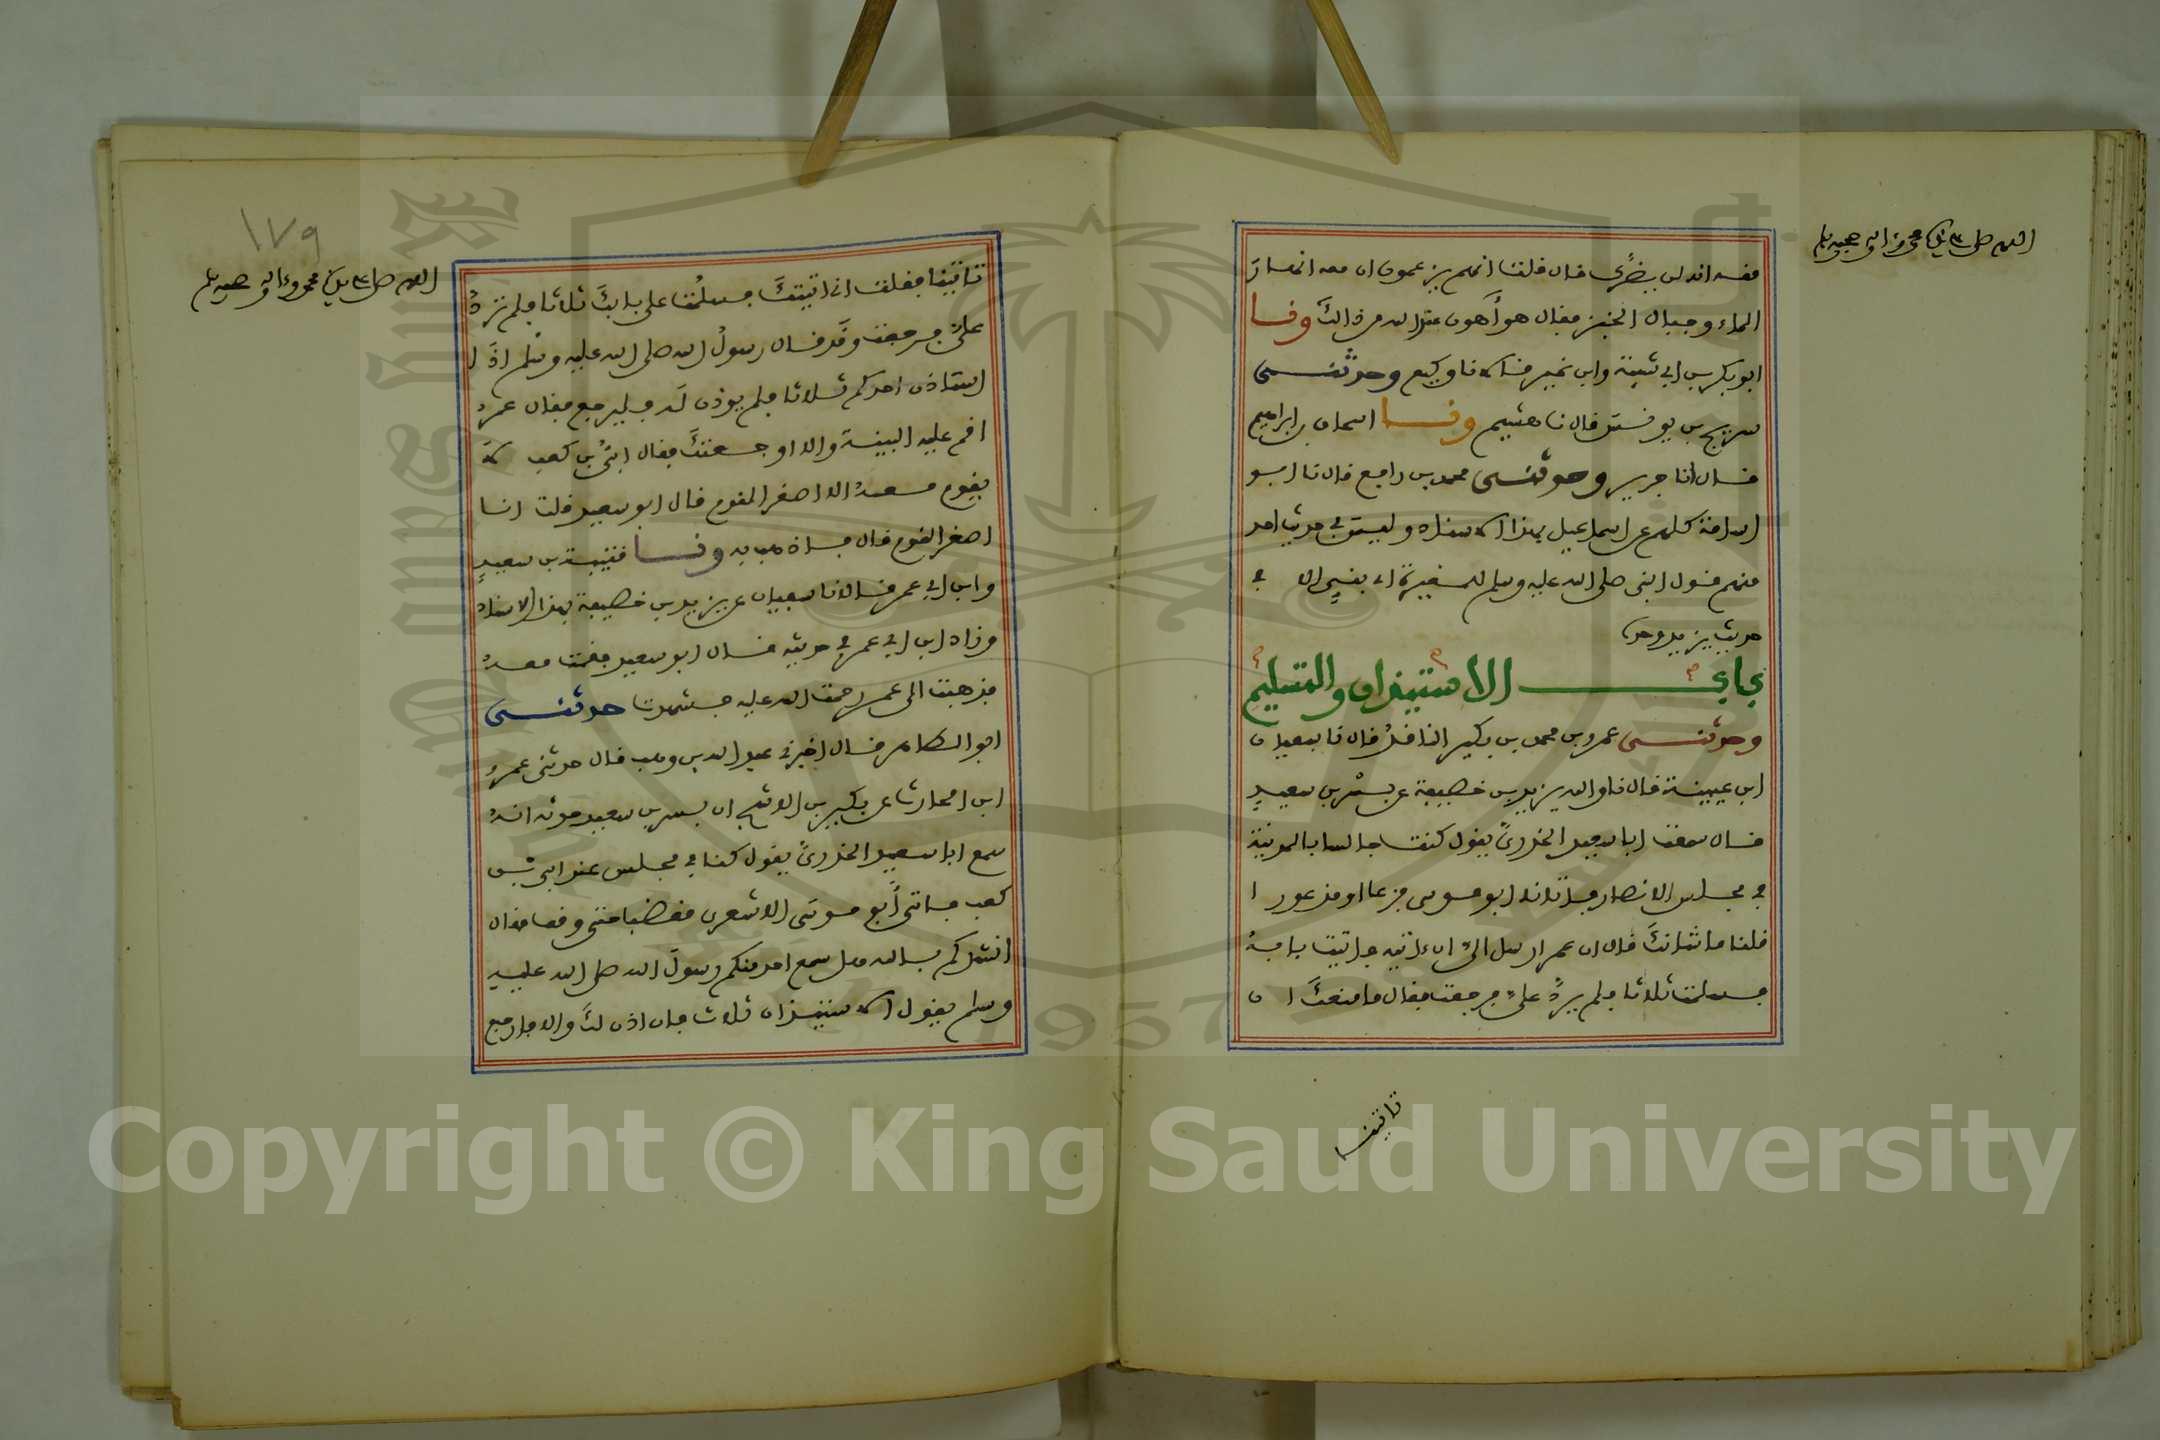 اللهم صل على سيدنا محمد وءاله وصحبه وسلم
منه انه لن يضرك قال قلت انهم يزعمون ان معه انهار
الماء وجبال الخبز فقال هو أهون على الله من ذالك ونا
ابو بكر بن ابي شيبة وابن نمير قالا نا وكيع وحدثنى
سريج بن يونس قال نا هشيم ونا اسحاق بن ابراهيم
قال انا جرير وحدثنى محمد بن رافع قال نا ابو
اسامة كلهم عن اسماعيل بهذا الاسناد وليس في حديث احد
منهم قول النبي صلى الله عليه وسلم للمغيرة اي بني الا في
حديث يزيد وحده
باب الاستيذان والتسليم
وحدثنى عمرو بن محمد بن بكير الناقد قال نا سفيان
ابن عيينة قال نا والله يزيد بن خصيفة عن بسر بن سعيد
قال سمعت ابا سعيد الخدري يقول كنت جالسا بالمدينة
في مجلس الانصار فاتانا ابو موسى فزعا او مذعورا
قلنا ما شانك قال ان عمر ارسل الي ان ءاتيه فاتيت بابه
فسلمت ثلاثا فلم يرد علي فرجعت فقال ما منعك ان
تاتينا
١٧٩
اللهم صل على سيدنا محمد وءاله وصحبه وسلم
تاتينا فقلت اني اتيتك فسلمت على بابك ثلاثا فلم ترد
علي فرجعت وقد قال رسول الله صلى الله عليه وسلم اذا
استاذن احدكم ثلاثا فلم يوذن له فليرجع فقال عمر
اقم عليه البينة والا اوجعتك فقال ابي بن كعب لا
يقوم معه الا اصغر القوم قال ابو سعيد قلت انا
اصغر القوم قال فاذهب به ونا قتيبة بن سعيد
وابن ابي عمر قالا نا سفيان عن يزيد بن خصيفة بهذا الاسناد
وزاد ابن ابي عمر في حديثه قال ابو سعيد فقمت معه
فذهبت الى عمر رحمت الله عليه فشهدت حدثنى
ابو الطاهر قال اخبرني عبد الله بن وهب قال حدثني عمرو
ابن الحارث عن بكير بن الاشج ان بسر بن سعيد حدثه انه
سمع ابا سعيد الخدري يقول كنا في مجلس عند ابي بن
كعب فاتى أبو موسى الاشعري مغضبا حتى وقف فقال
انشدكم بالله هل سمع احد منكم رسول الله صلى الله عليه
وسلم يقول الاستيذان ثلاث فان اذن لك والا فارجع
Copyright © King Saud University
1957